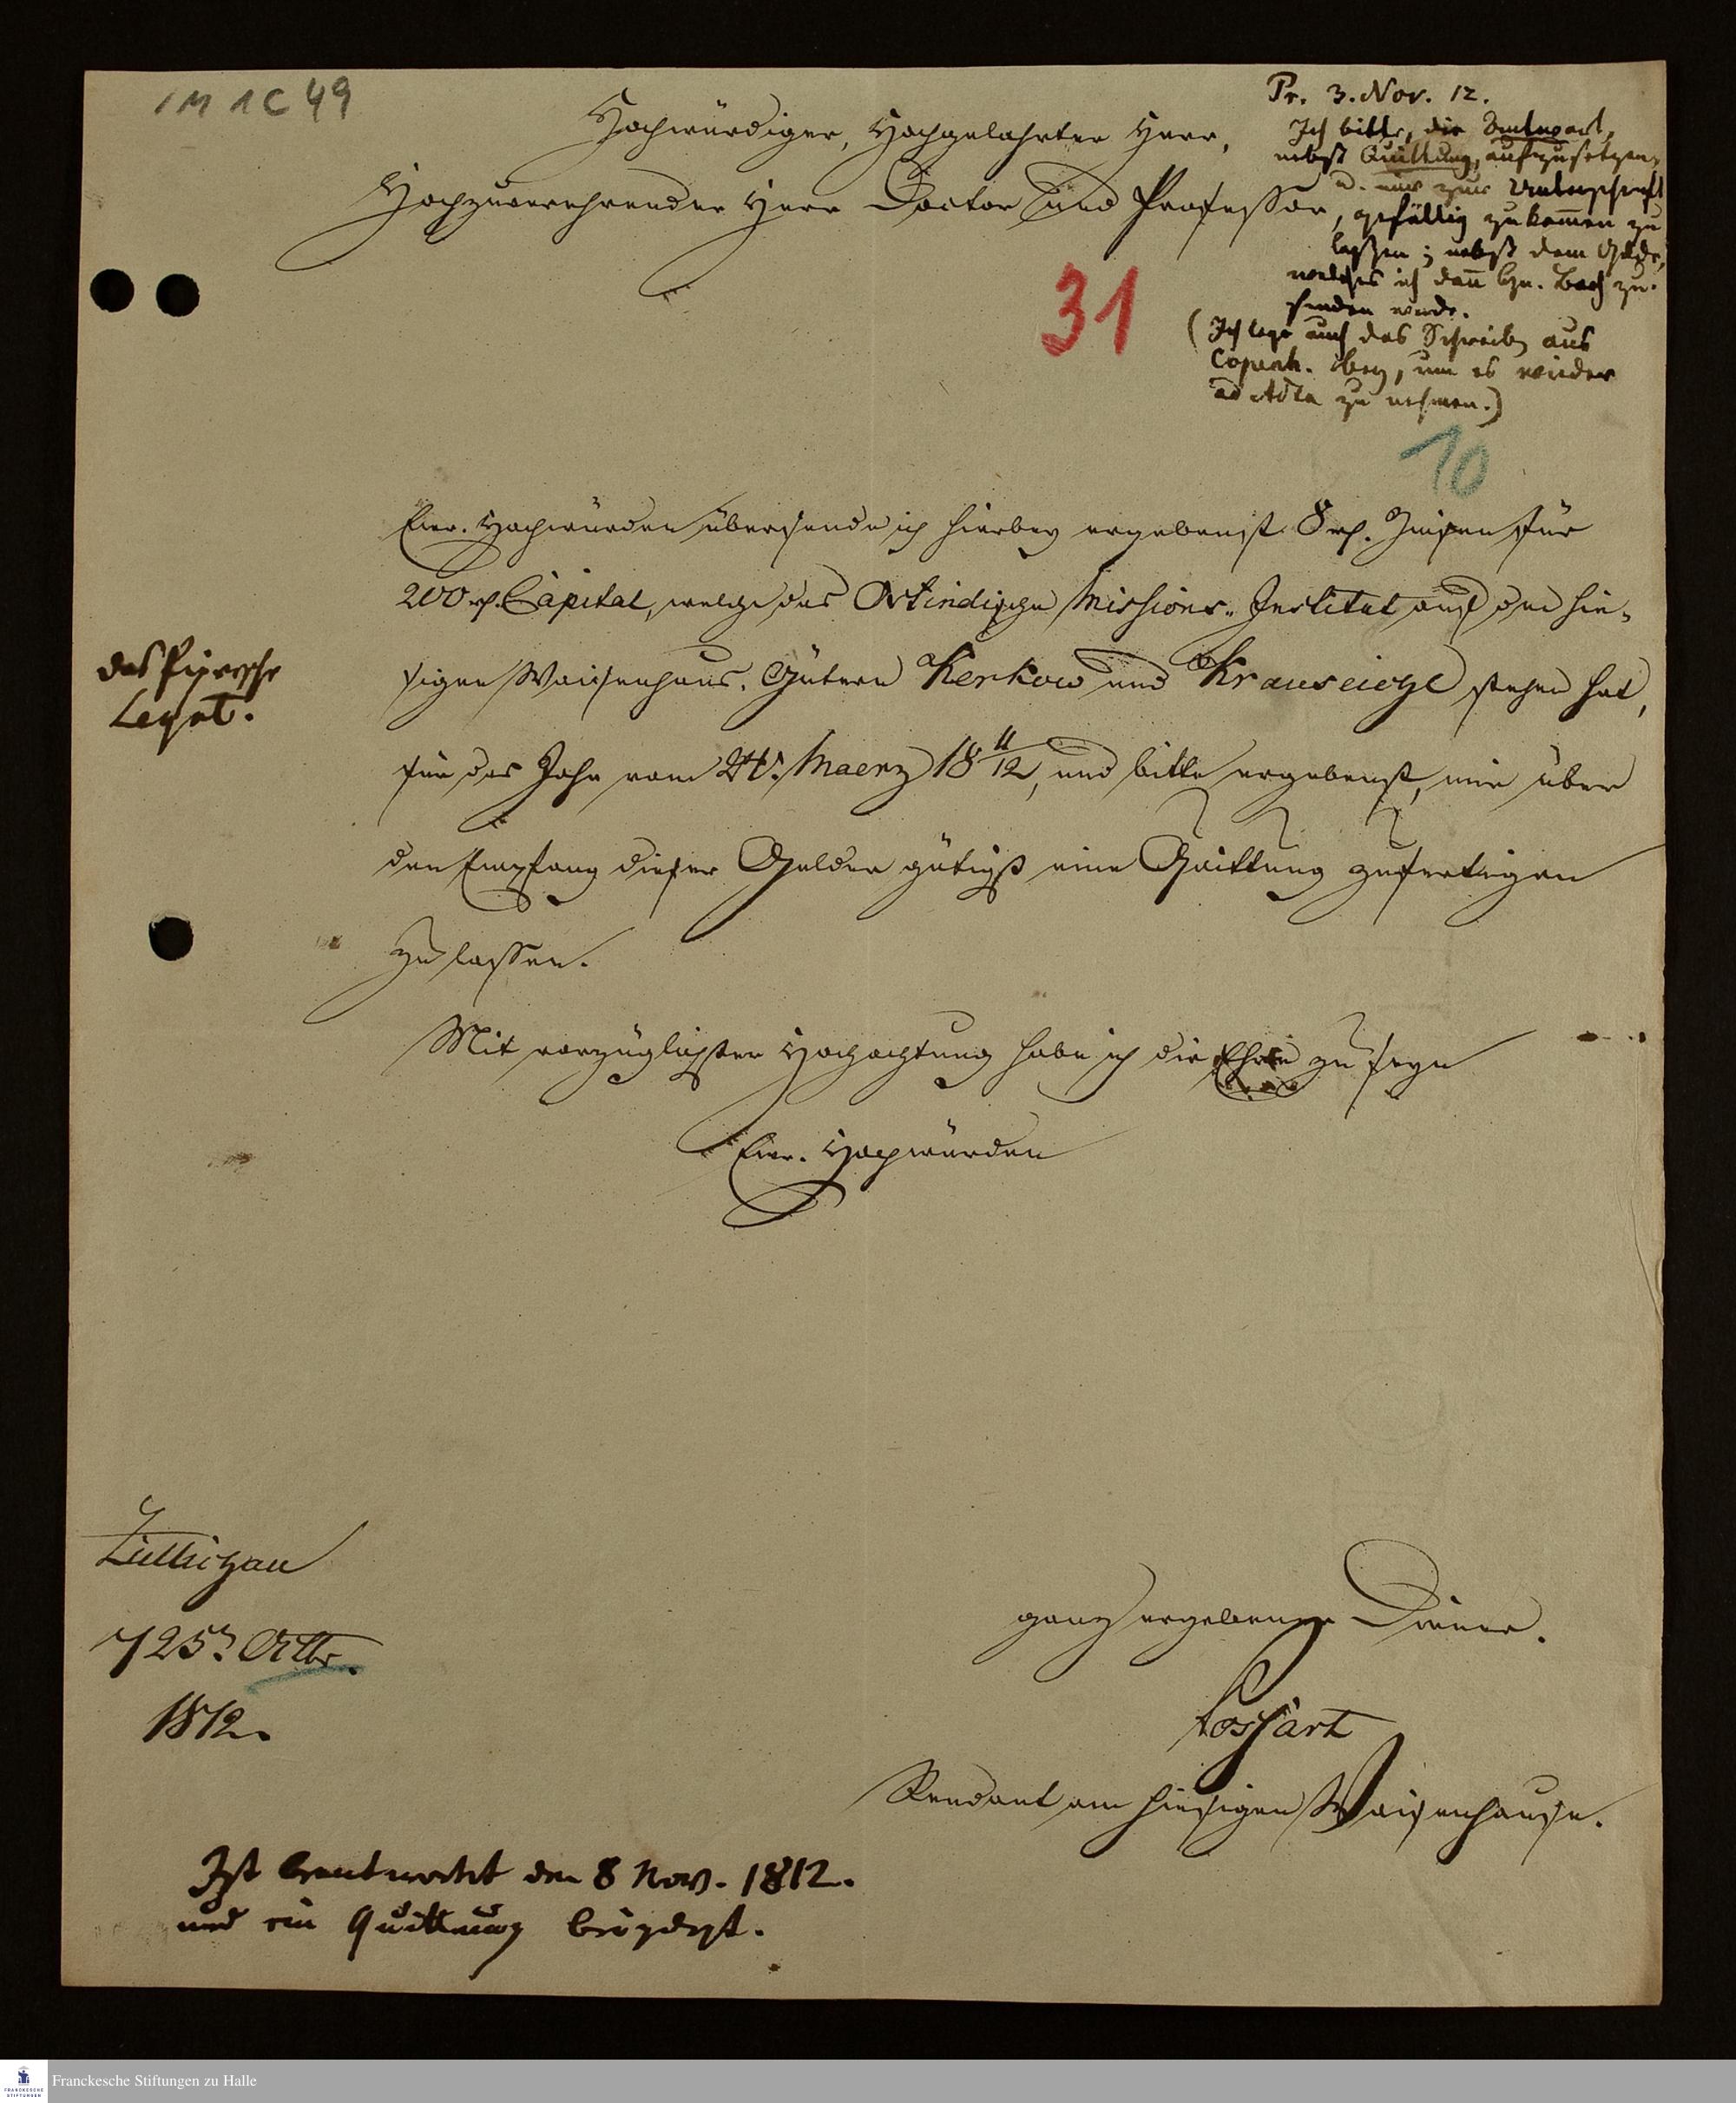 1 M 1 C 49
Pr. 3. Nov. 12.
Ich bitte, die Antwort,
nebst Quittung, aufzusetzen,
u. mir zur Unterschrift
gefällig zukom̅en zu
laßen; nebst dem Gelde,
welches ich dan̅ Hn. Bach zu-
senden werde.
(Ich lege auch das Schreiben aus
Copenh. bey, um es wieder
ad Acta zu nehmen.)
Hochwürdiger, Hochgelahrter Herr,
Hochzuverehrender Herr Doctor und Professor,
31
10
Ewr. Hochwürden übersende ich hierbey ergebenst 8 rh. Zinsen für
200 rh. Capital, welche das Ostindische Missions-Institut auf den hie-
sigen Waisenhaus-Gütern Kerkow und Krauseiche stehen hat,
für das Jahr vom 24. Maerz 18 11/12, und bitte ergebenst, mir über
den Empfang dieser Gelder gütigst eine Quittung zufertigen
zu lassen.
das
Legat.
Mit vorzüglichster Hochachtung habe ich die Ehre zu seyn
Ewr. Hochwürden
Züllichau
25 Octbr.
1812.
ganz ergebenster Diener.
Fossart
Rendant am hiesigen Waisenhause.
Ist beantwortet den 8 Nov. 1812.
und ein Quittung beigelegt.
Franckesche Stiftungen zu Halle
FRANCKESCHE
STIFTUNGEN